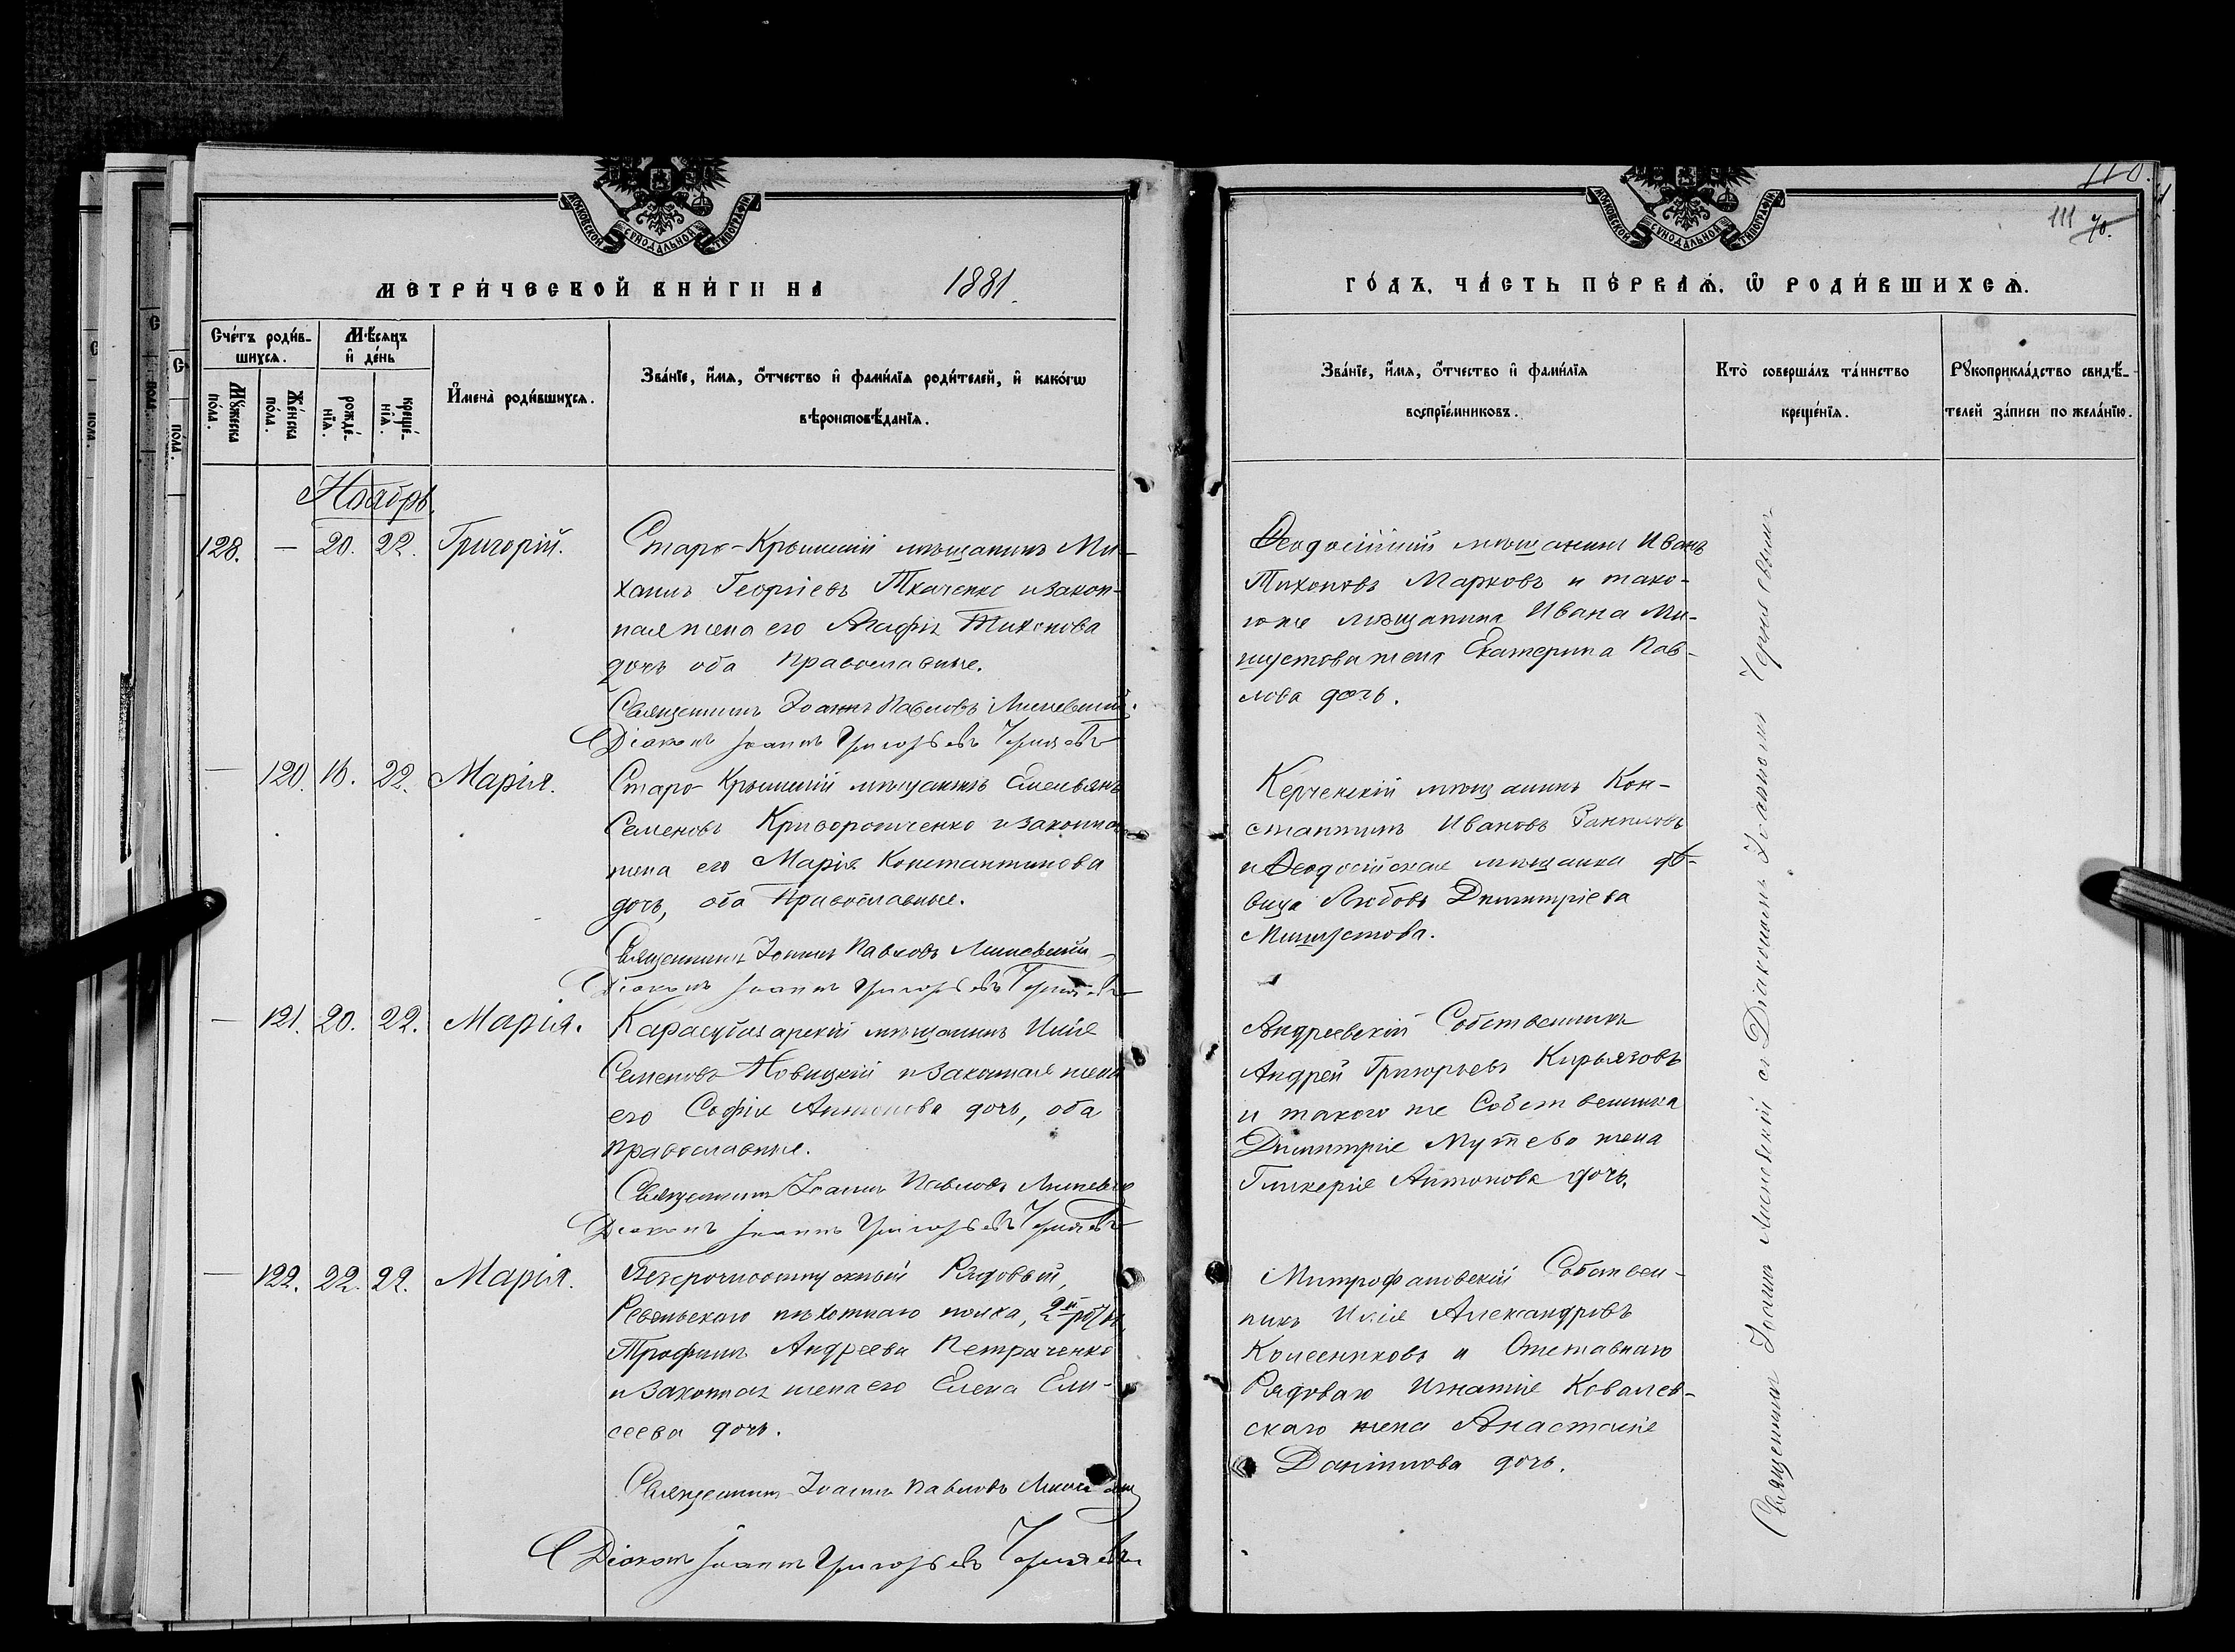 МОСКОВСКОЙ СѴНОДАЛЬНОЙ ТИПОГРАФІИ
МЕТРИ́ЧЕСКОЙ КНИ́ГИ НА 1881.
Сче́тъ роди́в-
шихсѧ.
Мѣ́сѧцъ
и҆ де́нь
Мꙋ́жеска
по́ла.
Же́нска
по́ла.
рожде́-
нїѧ.
креще́-
нїѧ.
И҆мена̀ роди́вшихсѧ.
Зва́нїе, и҆́мѧ, ѻ҆́тчество и҆ фами́лїѧ роди́телей, и҆ како́гѡ
вѣроисповѣ́данїѧ.
Ноябрь.
128. — 20. 22. Григорій.
Старо-Крымскій мѣщанинъ Ми-
хаилъ Георгіевъ Ткаченко и закон-
ная жена его Агафія Тихонова
дочь оба Православные.
Священникъ Іоаннъ Павловъ
Діаконъ Іоаннъ Григорьевъ Чернявъ
— 120. 16. 22. Марія.
Старо-Крымскій мѣщанинъ Емельянъ
Семеновъ и законная
жена его Марія Константинова
дочь, оба Православные.
Священникъ Іоаннъ Павловъ
Діаконъ Іоаннъ Григорьевъ
— 121. 20. 22. Марія.
Карасубазарскій мѣщанинъ Илія
Семеновъ Новицкій и законная жена
его Софія Антонова дочь, оба
православные.
Священникъ Іоаннъ Павловъ
Діаконъ Іоаннъ Григорьевъ
— 122. 22. 22. Марія.
Безсрочноотпускный Рядовый,
Ревельскаго пѣхотнаго полка, 2й роты,
Трофимъ Андреевъ Петраченко
и законная жена его Елена Ели-
сеева дочь.
Священникъ Іоаннъ Павловъ
Діаконъ Іоаннъ Григорьевъ
110.
111 70.
МОСКОВСКОЙ СѴНОДАЛЬНОЙ ТИПОГРАФІИ
ГО́ДЪ, ЧА́СТЬ ПЕ́РВАѦ, Ѡ҆ РОДИ́ВШИХСѦ.
Зва́нїе, и҆́мѧ, ѻ҆́тчество и҆ фами́лїѧ
воспрїе́мниковъ.
Кто̀ соверша́лъ та́инство
креще́нїѧ.
Рꙋкоприкла́дство свидѣ́-
телей за́писи по жела́нїю.
Ѳеодосійскій мѣщанинъ Иванъ
Тихоновъ Марковъ и тако-
го же мѣщанина Ивана Ми-
шустова жена Екатерина Пав-
лова дочь.
Керченскій мѣщанинъ Кон-
стантинъ Ивановъ
и Ѳеодосійская мѣщанка дѣ-
вица Любовь Димитріева
Мишустова.
Андреевскій Собственникъ
Андрей Григорьевъ Кирьязовъ
и такого же Собственника
Димитрія Мутево жена
Гликерія Антонова дочь.
Митрофановскій Собствен-
никъ Илія Александровъ
Колесниковъ и Отставнаго
Рядоваго Игнатія Ковалев-
скаго жена Анастасія
Даніилова дочь.
Священникъ Іоаннъ съ Діакономъ Іоанномъ